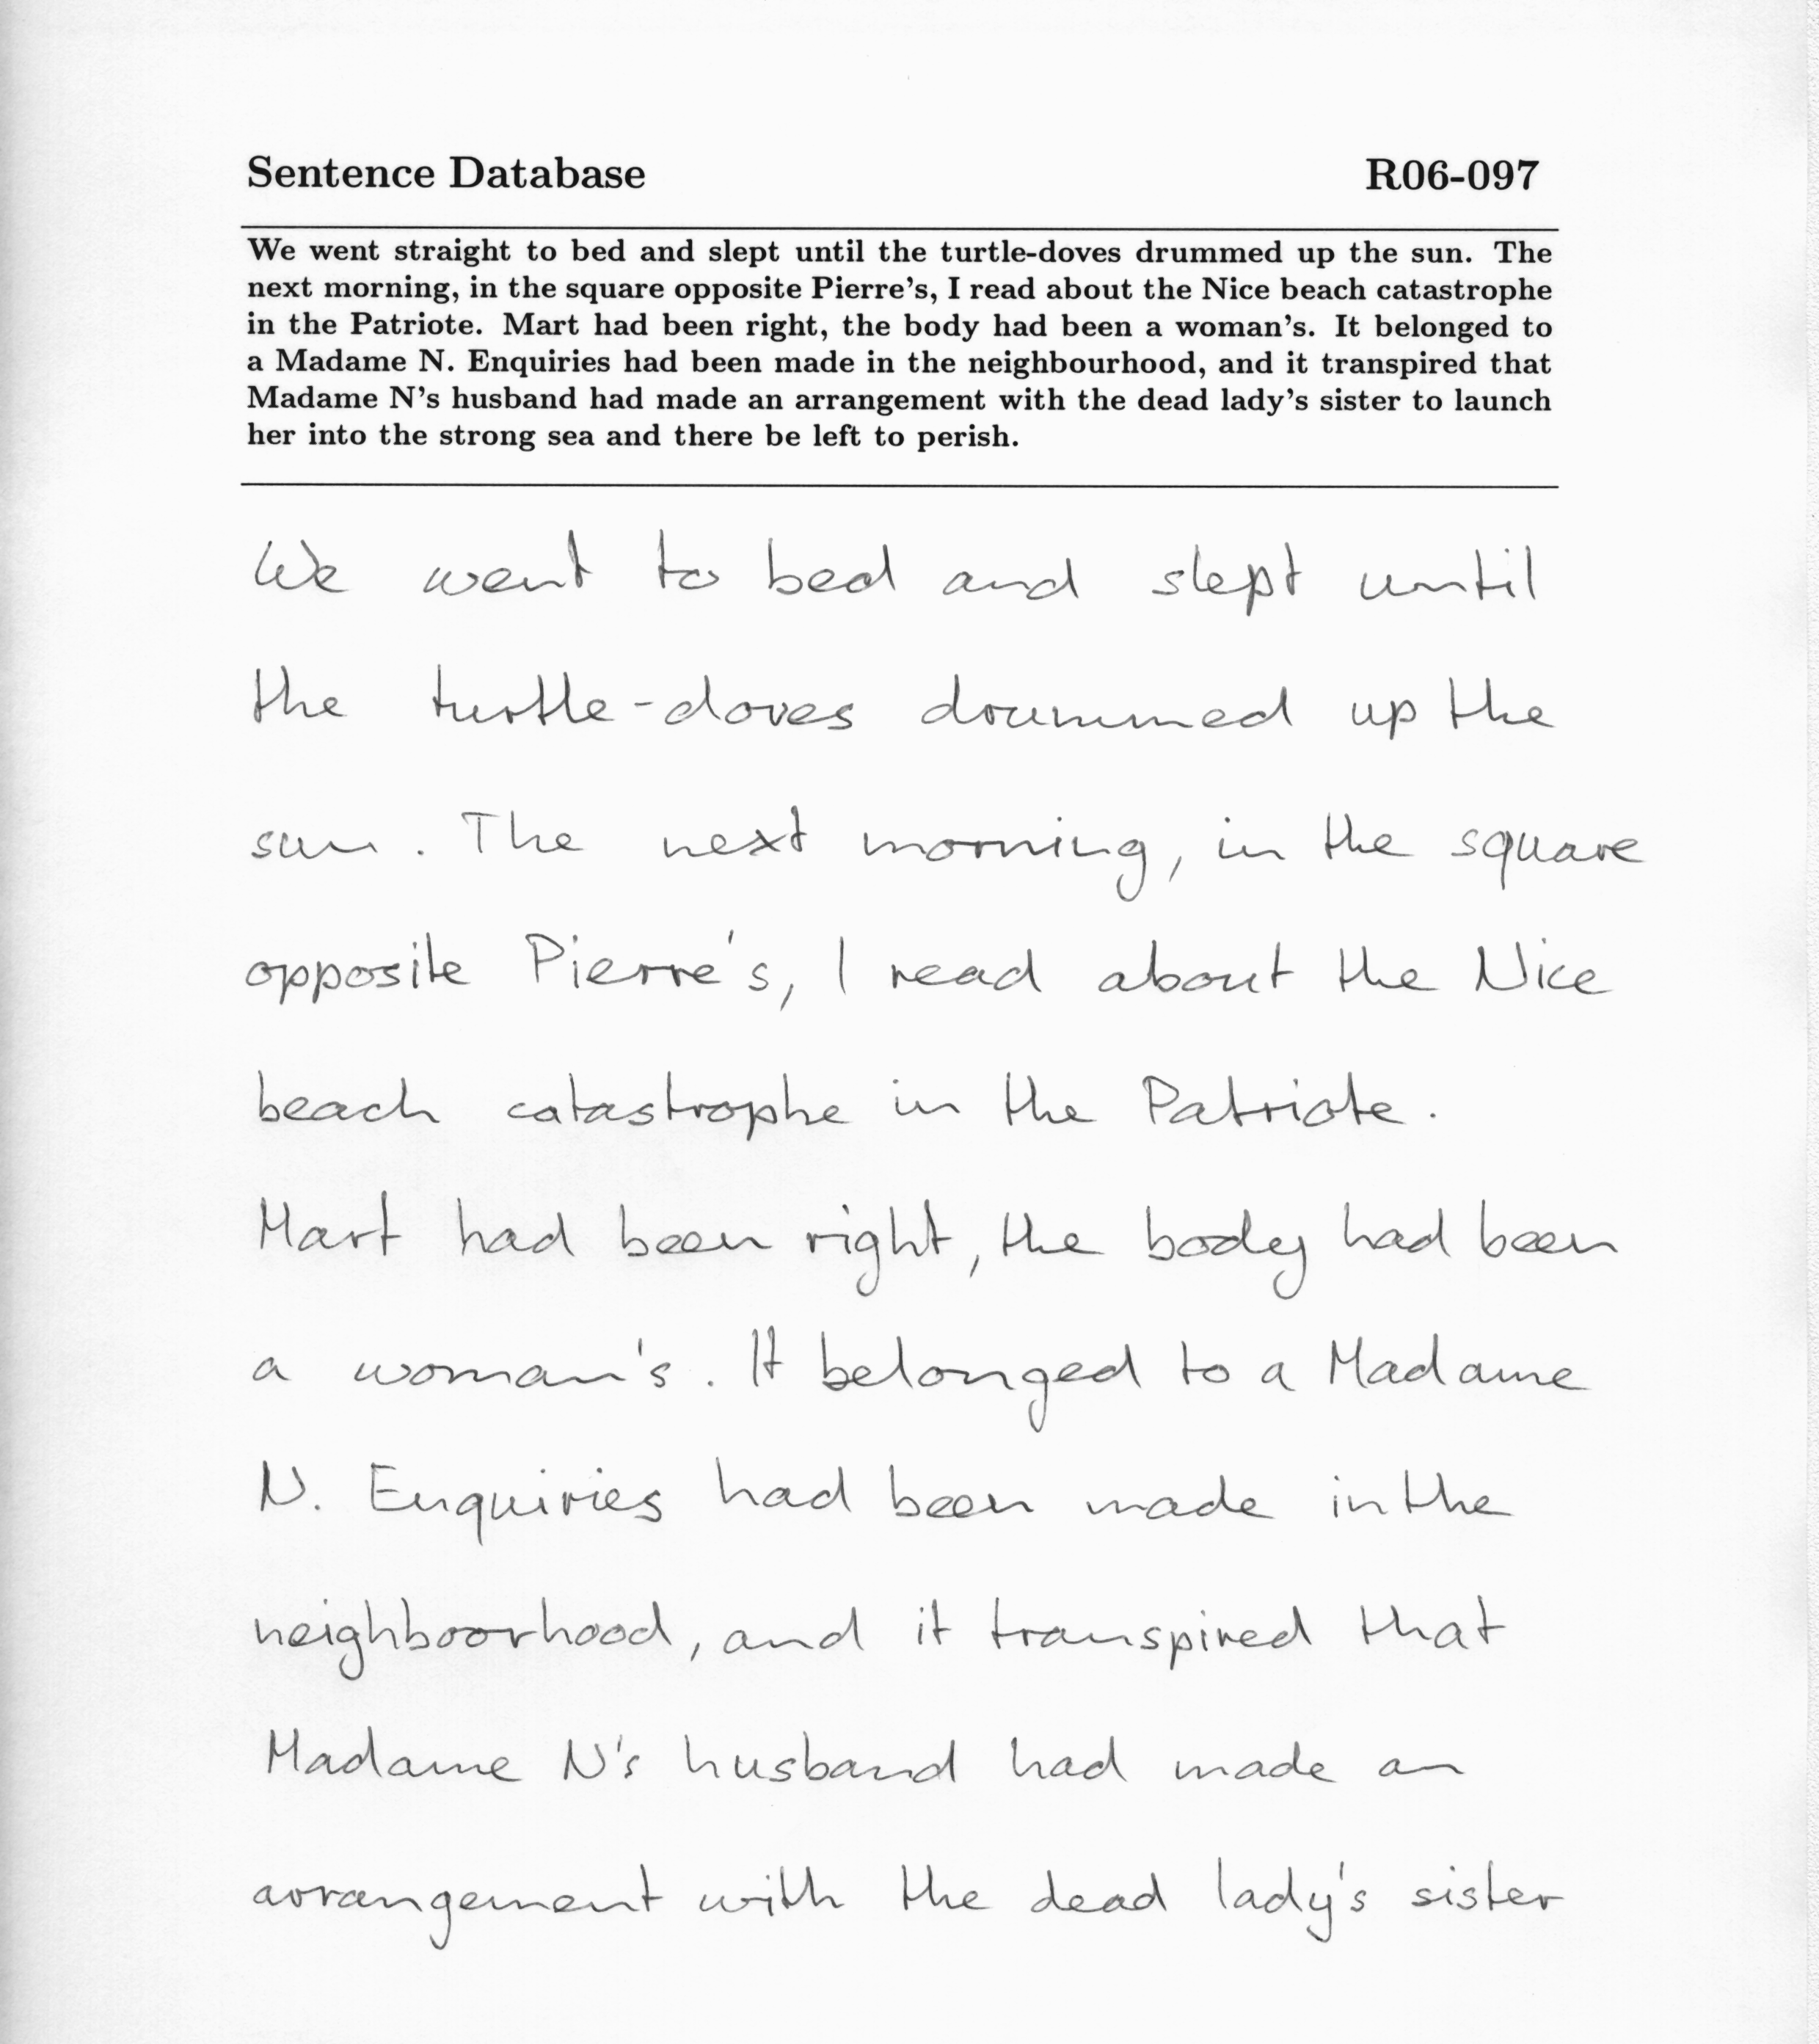 Sentence Database R06-097
We went straight to bed and slept until the turtle-doves drummed up the sun. The
next morning, in the square opposite Pierre's, I read about the Nice beach catastrophe
in the Patriote. Mart had been right, the body had been a woman's. It belonged to
a Madame N. Enquiries had been made in the neighbourhood, and it transpired that
Madame N's husband had made an arrangement with the dead lady's sister to launch
her into the strong sea and there be left to perish.
We went to bed and slept until
the turtle-doves drummed up the
sun. The next morning, in the square
opposite Pierre's, I read about the Nice
beach catastrophe in the Patriote.
Mart had been right, the body had been
a woman's. It belonged to a Madame
N. Enquiries had been made in the
neighboorhood, and it transpired that
Madame N's husband had made an
arrangement with the dead lady's sister